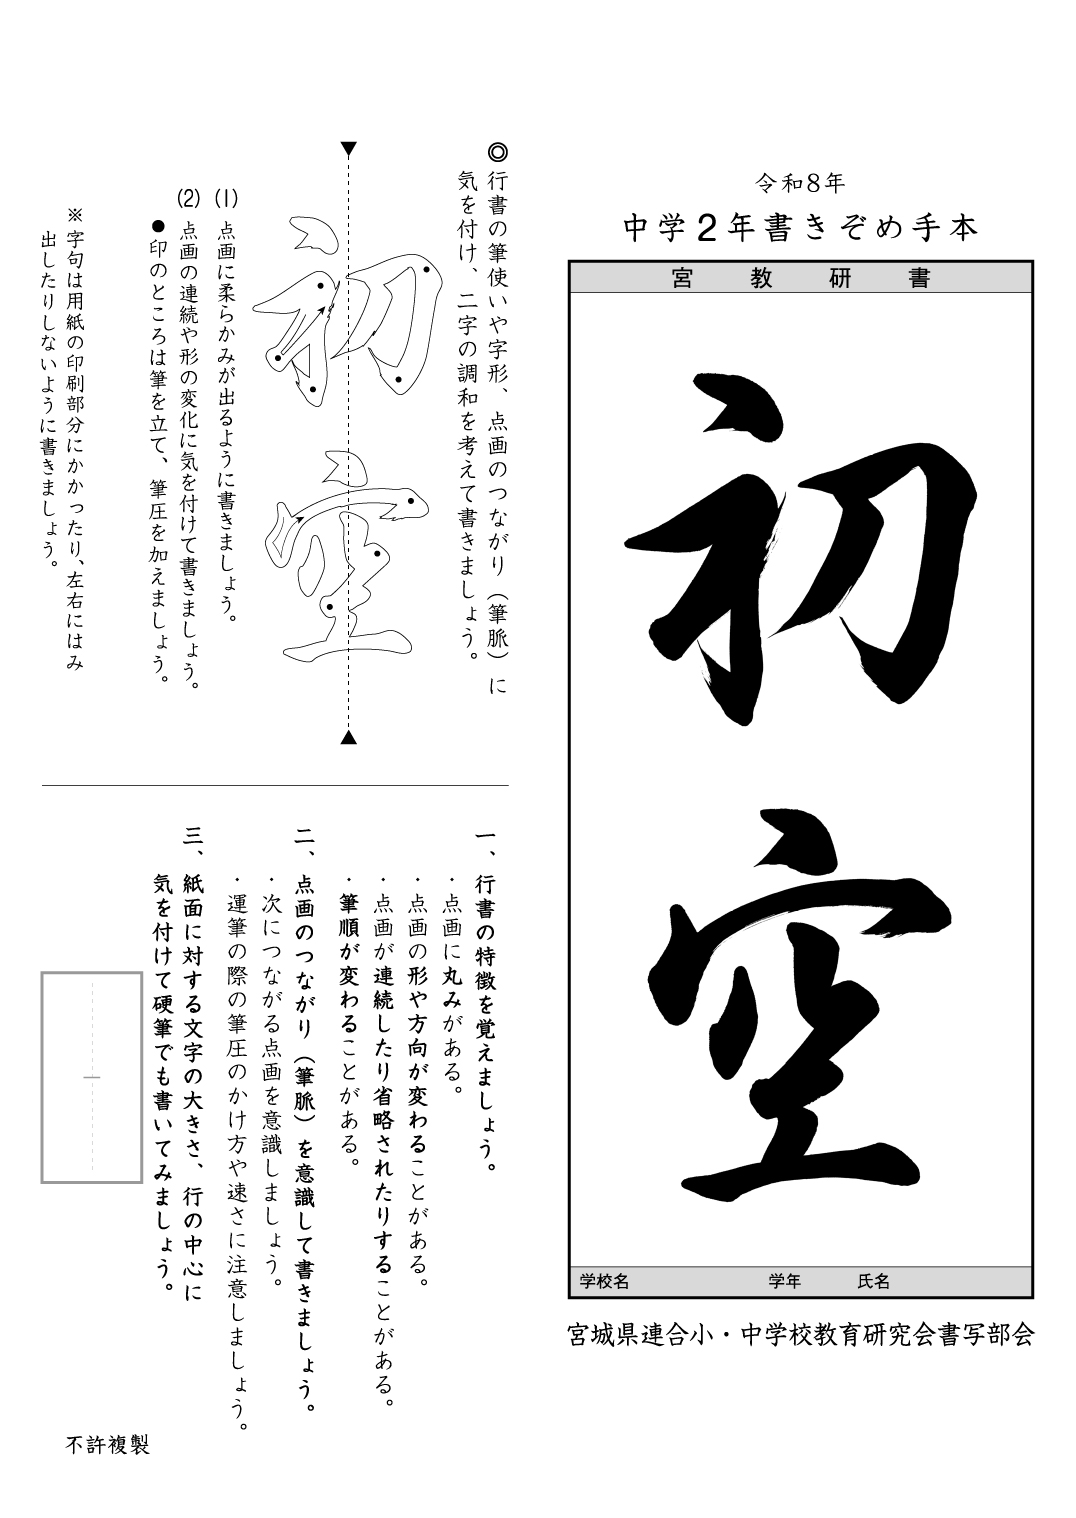 令和8年
中学2年書きぞめ手本
宮教研書
初空
学校名 学年 氏名
宮城県連合小・中学校教育研究会書写部会
◎行書の筆使いや字形、点画のつながり（筆脈）に
気を付け、二字の調和を考えて書きましょう。
初空
(1) 点画に柔らかみが出るように書きましょう。
(2) 点画の連続や形の変化に気を付けて書きましょう。
●印のところは筆を立て、筆圧を加えましょう。
※字句は用紙の印刷部分にかかったり、左右にはみ
出したりしないように書きましょう。
一、行書の特徴を覚えましょう。
・点画に丸みがある。
・点画の形や方向が変わることがある。
・点画が連続したり省略されたりすることがある。
・筆順が変わることがある。
二、点画のつながり（筆脈）を意識して書きましょう。
・次につながる点画を意識しましょう。
・運筆の際の筆圧のかけ方や速さに注意しましょう。
三、紙面に対する文字の大きさ、行の中心に
気を付けて硬筆でも書いてみましょう。
不許複製